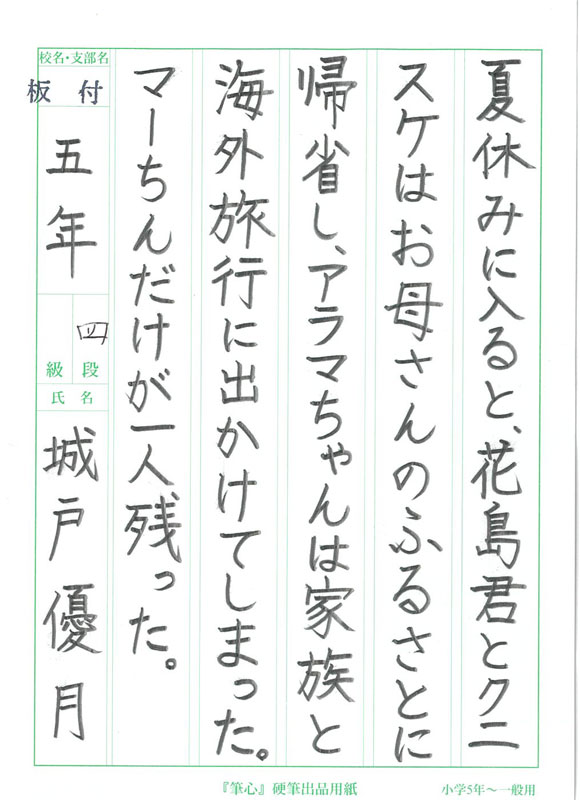 夏休みに入ると、花島君とクニ
スケはお母さんのふるさとに
帰省し、アラマちゃんは家族と
海外旅行に出かけてしまった。
マーちんだけが一人残った。
校名・支部名
板付
五年
四
級 段
氏名
城戸優月
『筆心』硬筆出品用紙
小学5年～一般用